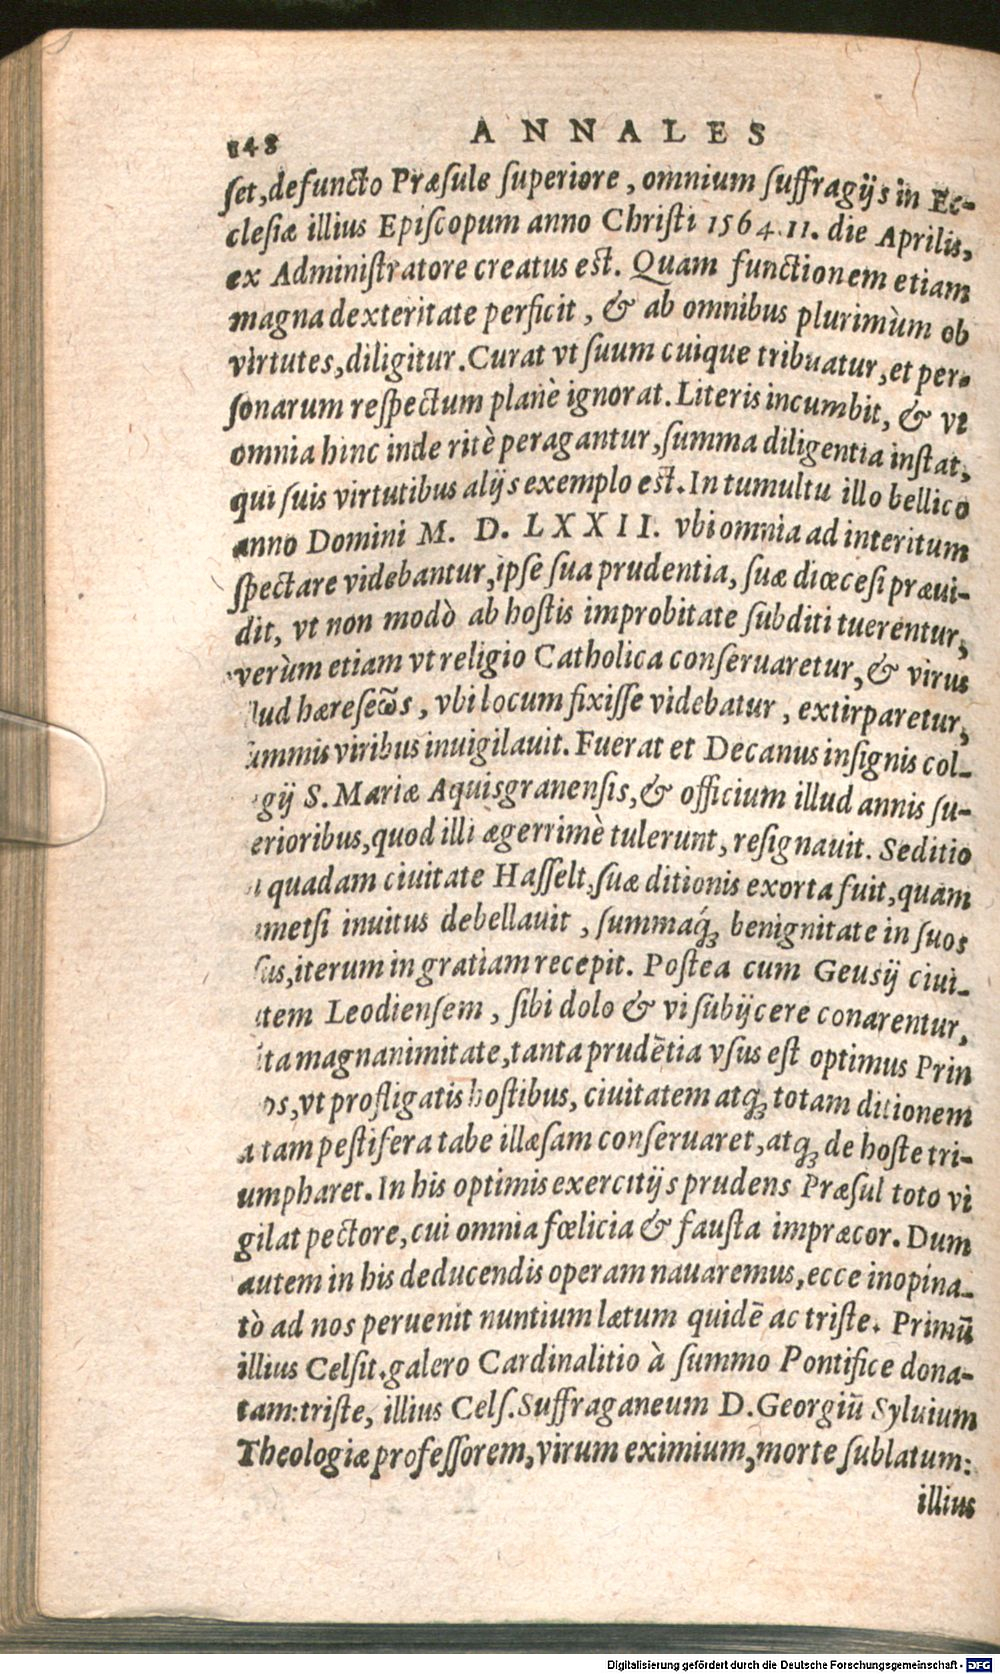 148 ANNALES
ſet, defuncto Præſule ſuperiore, omnium ſuffragijs in Ec-
cleſiæ illius Epiſcopum anno Chriſti 1564. 11. die Aprilis,
ex Adminiſtratore creatus eſt. Quam functionem etiam
magna dexteritate perficit, & ab omnibus plurimùm ob
virtutes, diligitur. Curat vt ſuum cuique tribuatur, et per-
ſonarum reſpectum planè ignorat. Literis incumbit, & vt
omnia hinc inde ritè peragantur, ſumma diligentia inſtat,
qui ſuis virtutibus alijs exemplo eſt. In tumultu illo bellico
anno Domini M. D. LXXII. vbi omnia ad interitum
ſpectare videbantur, ipſe ſua prudentia, ſuæ diœceſi præui-
dit, vt non modò ab hoſtis improbitate ſubditi tuerentur,
verùm etiam vt religio Catholica conſeruaretur, & virus
lud hæreſeω̃s, vbi locum fixiſſe videbatur, extirparetur,
ummis viribus inuigilauit. Fuerat et Decanus inſignis col-
gij S. Mariæ Aquisgranenſis, & officium illud annis ſu-
erioribus, quod illi ægerrimè tulerunt, reſignauit. Seditio
quadam ciuitate Haſſelt, ſuæ ditionis exorta fuit, quam
metſi inuitus debellauit, ſummaq́; benignitate in ſuos
ſus, iterum in gratiam recepit. Poſtea cum Geusij ciui-
tem Leodienſem, ſibi dolo & vi ſubijcere conarentur,
ta magnanimitate, tanta prudẽtia vſus eſt optimus Prin
ps, vt profligatis hoſtibus, ciuitatem atq; totam ditionem
a tam peſtifera tabe illæſam conſeruaret, atq; de hoſte tri-
umpharet. In his optimis exercitijs prudens Præſul toto vi
gilat pectore, cui omnia fœlicia & fauſta impræcor. Dum
autem in his deducendis operam nauaremus, ecce inopina-
tò ad nos peruenit nuntium lætum quidẽ ac triſte. Primũ
illius Celſit. galero Cardinalitio à ſummo Pontifice dona-
tam: triſte, illius Celſ. Suffraganeum D. Georgiũ Syluium
Theologiæ profeſſorem, virum eximium, morte ſublatum:
illius
Digitalisierung gefördert durch die Deutsche Forschungsgemeinschaft - DFG